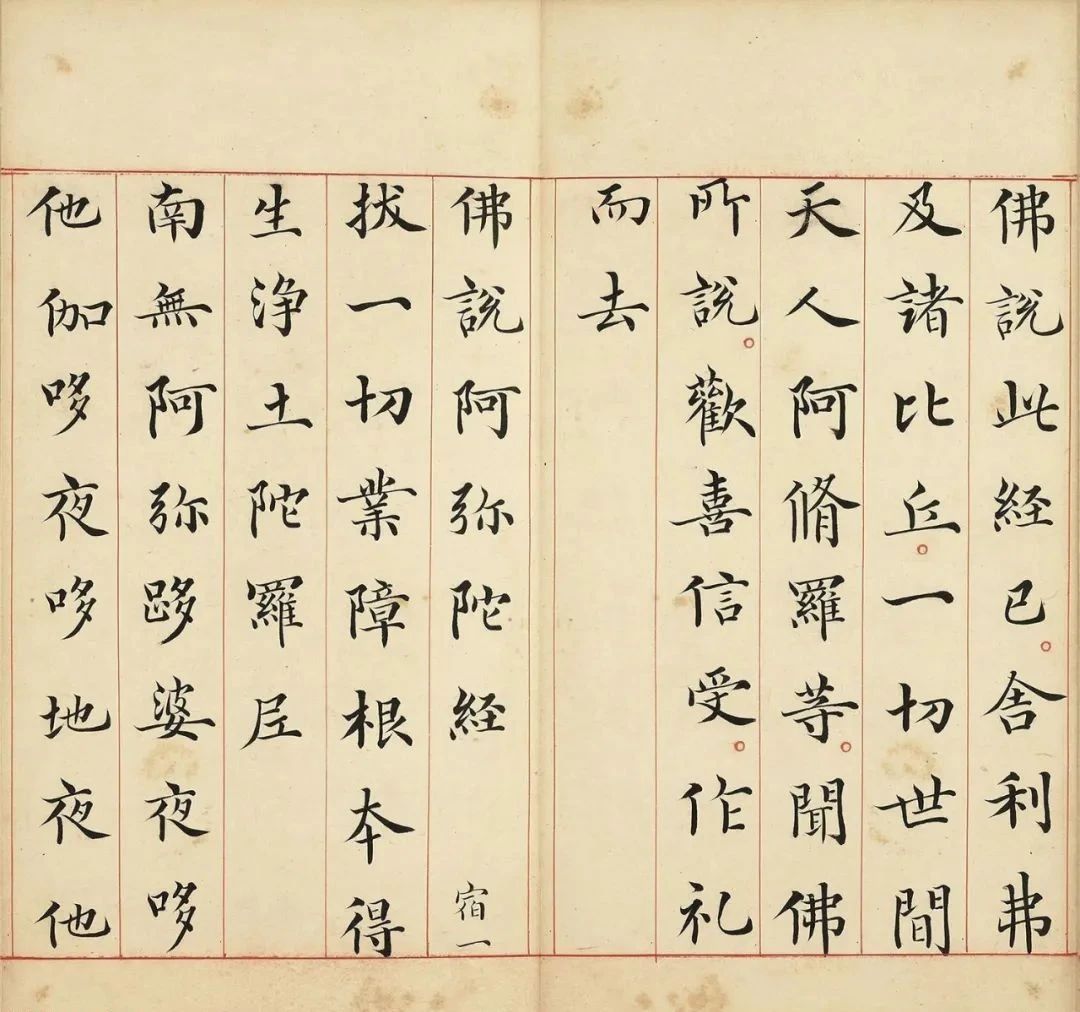 佛說此経已舎利弗
及諸比丘一切世間
天人阿脩羅等聞佛
所說歡喜信受作礼
而去
佛說阿弥陀経 宿一
拔一切業障根本得
生淨土陀羅尼
南無阿弥哆婆夜哆
他伽哆夜哆地夜他